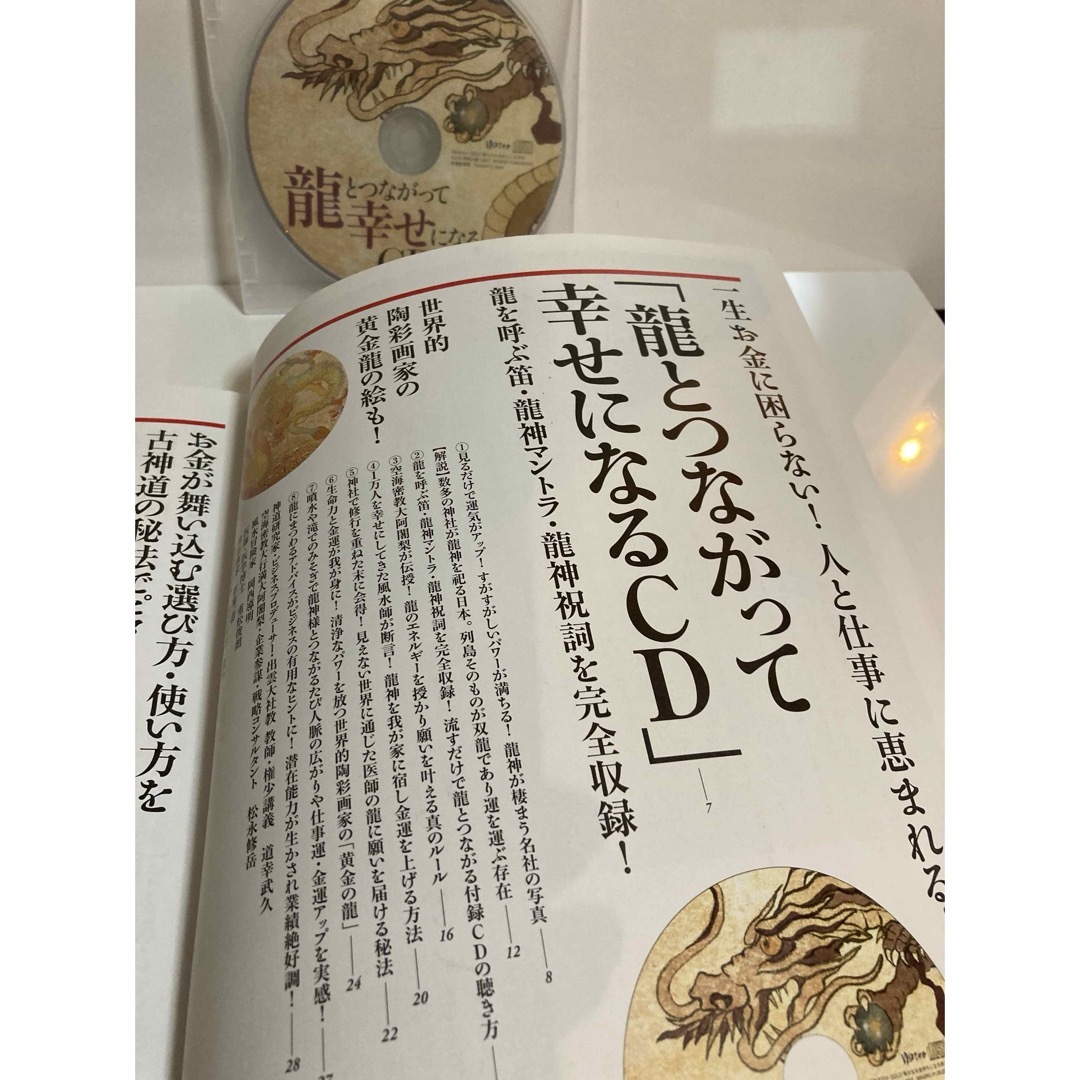 龍とつながって
幸せになる
CD
一生お金に困らない！ 人と仕事に恵まれる
「龍とつながって
幸せになるCD」
7
龍を呼ぶ笛・龍神マントラ・龍神祝詞を完全収録！
世界的
陶彩画家の
黄金龍の絵も！
①見るだけで運気がアップ！ すがすがしいパワーが満ちる！ 龍神が棲まう名社の写真 8
【解説】数多の神社が龍神を祀る日本。列島そのものが双龍であり運を運ぶ存在 12
②龍を呼ぶ笛・龍神マントラ・龍神祝詞を完全収録！ 流すだけで龍とつながる付録CDの聴き方
③空海密教大阿闍梨が伝授！ 龍のエネルギーを授かり願いを叶える真のルール 16
④1万人を幸せにしてきた風水師が断言！ 龍神を我が家に宿し金運を上げる方法 20
⑤神社で修行を重ねた末に会得！ 見えない世界に通じた医師の龍に願いを届ける秘法 22
⑥生命力と金運が我が身に！ 清浄なパワーを放つ世界的陶彩画家の「黄金の龍」 24
⑦噴水や滝でのみそぎで龍神様とつながるたび人脈の広がりや仕事運・金運アップを実感！ 27
⑧龍にまつわるアドバイスがビジネスの有用なヒントに！ 潜在能力が生かされ業績絶好調！ 28
神道研究家・ビジネスプロデューサー・出雲大社教 教師・権少講義 道幸武久
空海密教大行満大阿闍梨・企業参謀・戦略コンサルタント 松永修岳
お金が舞い込む選び方・使い方を
古神道の秘法で